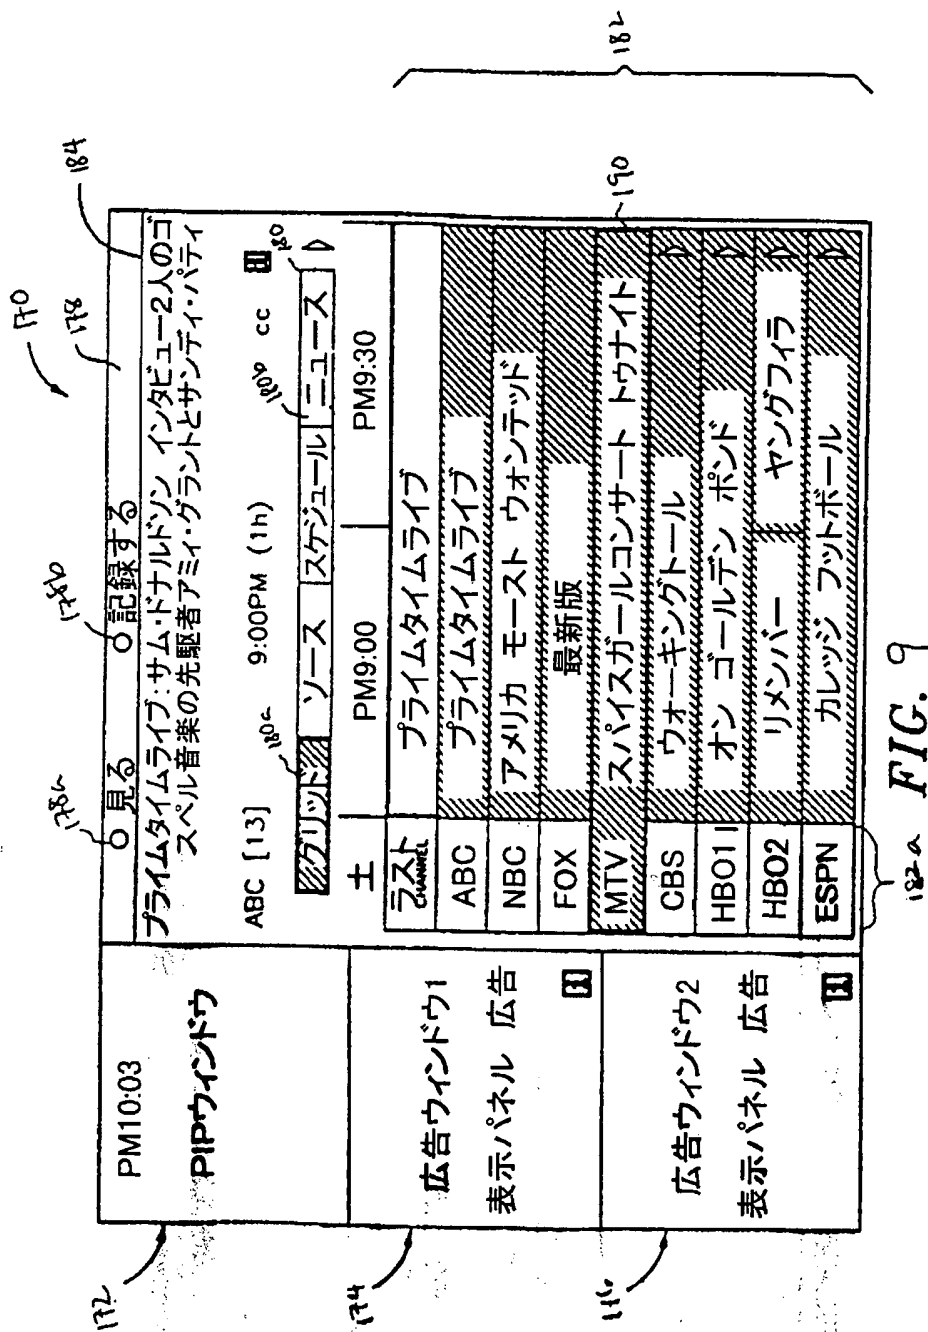 170
178
184
178a
178b
○見る
○記録する
プライムタイムライブ:サム・ドナルドソン インタビュー2人のゴ
スペル音楽の先駆者アミィ・グラントとサンディ・パティ
PM10:03
PIPウィンドウ
172
ABC [13] 9:00PM (1h) cc
180a
180
グリッド ソース スケジュール ニュース
土 PM9:00 PM9:30
ラスト CHANNEL プライムタイムライブ
ABC プライムタイムライブ
NBC アメリカ モースト ウォンテッド
FOX 最新版
MTV スパイスガールコンサート トゥナイト
190
CBS ウォーキングトール
HBO11 オン ゴールデン ポンド
HBO2 リメンバー ヤングフィラ
ESPN カレッジ フットボール
182
182a
広告ウィンドウ1
表示パネル 広告
174
広告ウィンドウ2
表示パネル 広告
FIG. 9